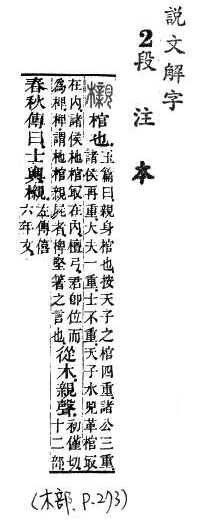 說文解字
2段注本
櫬 棺也。玉篇曰。親身棺也。按天子之棺四重。諸公三重。
諸侯再重。大夫一重。士不重。天子水兕革棺㝡
在内。諸侯杝棺㝡在内。檀弓。君卽位而
爲椑。椑謂杝棺親屍者。椑堅著之言也。從木。親聲。初僅切
十二部
春秋傳曰。士輿櫬。左傳僖
六年文。
(木部. P.273)